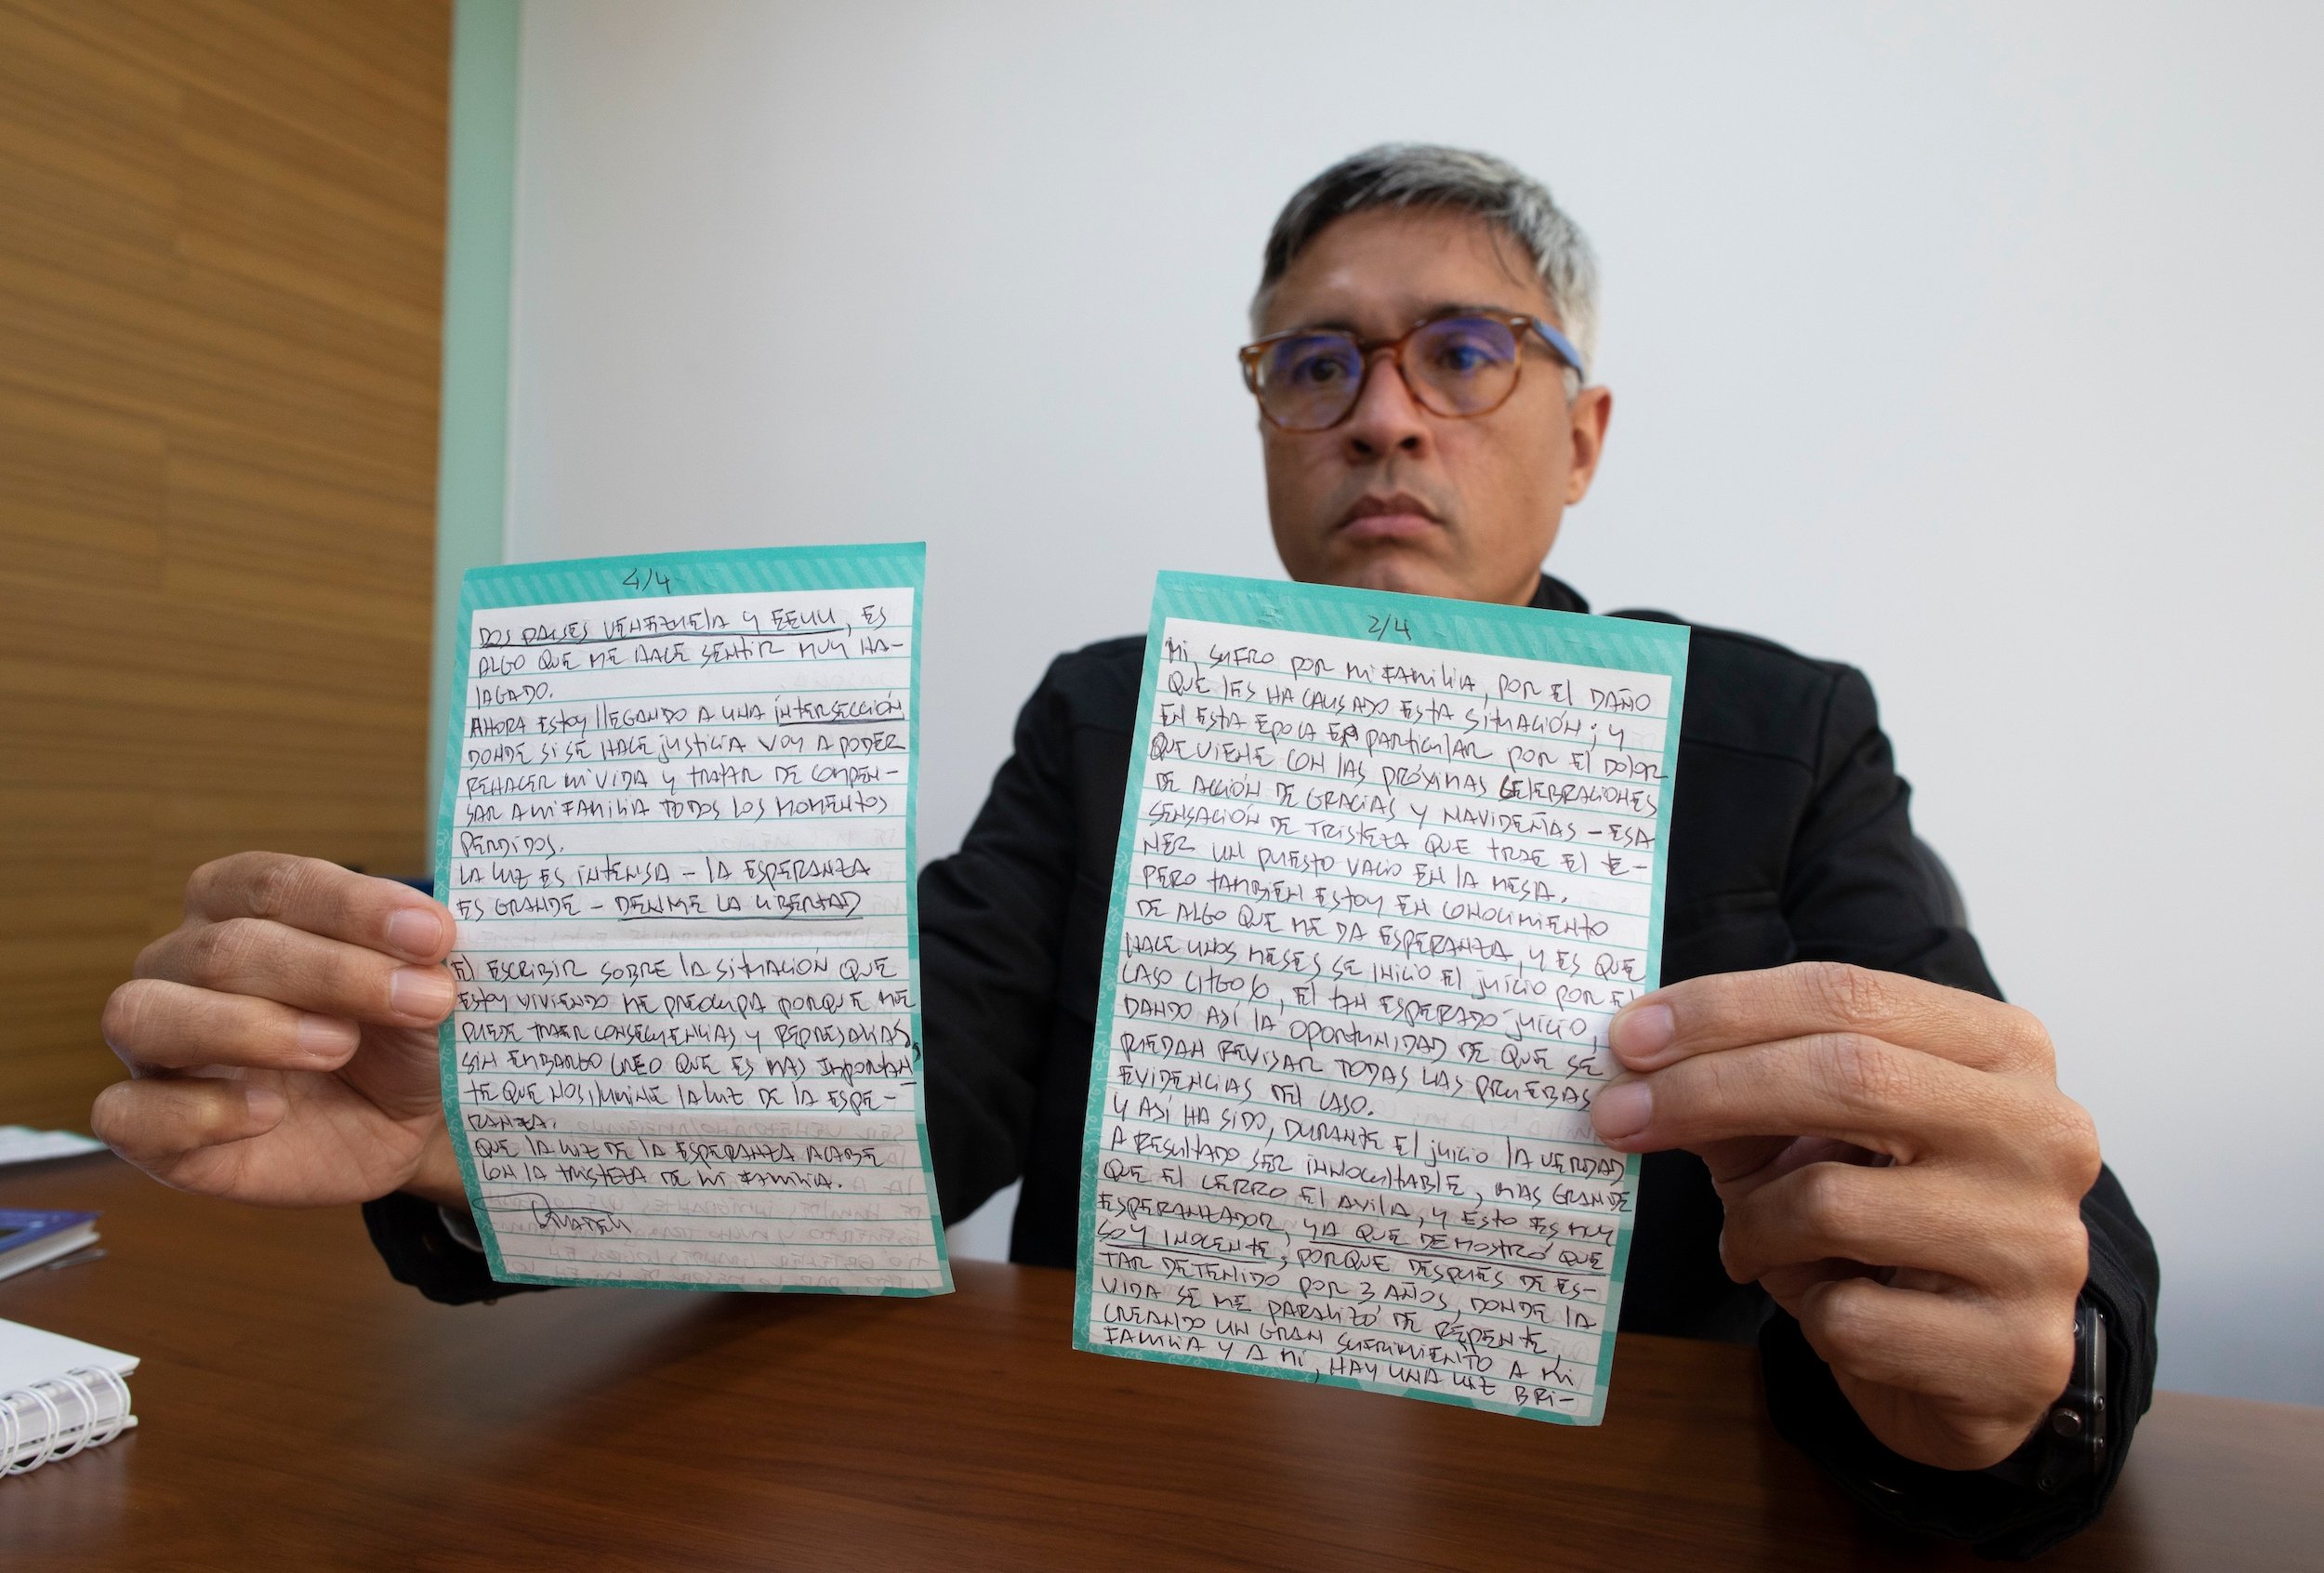 4/4
DOS PAISES VENEZUELA Y EEUU, ES
ALGO QUE ME HACE SENTIR MUY HA-
LAGADO.
AHORA ESTOY LLEGANDO A UNA INTERSECCIÓN
DONDE SI SE HACE JUSTICIA VOY A PODER
REHACER MI VIDA Y TRATAR DE COMPEN-
SAR A MI FAMILIA TODOS LOS MOMENTOS
PERDIDOS.
LA LUZ ES INTENSA - LA ESPERANZA
ES GRANDE - DENME LA LIBERTAD
EL ESCRIBIR SOBRE LA SITUACIÓN QUE
ESTOY VIVIENDO ME PREOCUPA PORQUE ME
PUEDE TRAER CONSECUENCIAS Y REPRESALIAS,
SIN EMBARGO CREO QUE ES MAS IMPORTAN-
TE QUE NOS ILUMINE LA LUZ DE LA ESPE-
RANZA.
QUE LA LUZ DE LA ESPERANZA ACABE
CON LA TRISTEZA DE MI FAMILIA.
2/4
MI, SUFRO POR MI FAMILIA, POR EL DAÑO
QUE LES HA CAUSADO ESTA SITUACIÓN; Y
EN ESTA EPOCA EN PARTICULAR POR EL DOLOR
QUE VIENE CON LAS PRÓXIMAS CELEBRACIONES
DE ACCIÓN DE GRACIAS Y NAVIDEÑAS - ESA
SENSACIÓN DE TRISTEZA QUE TRAE EL TE-
NER UN PUESTO VACIO EN LA MESA.
PERO TAMBIEN ESTOY EN CONOCIMIENTO
DE ALGO QUE ME DA ESPERANZA, Y ES QUE
HACE UNOS MESES SE INICIO EL JUICIO POR EL
CASO CITGO 6, EL TAN ESPERADO JUICIO,
DANDO ASÍ LA OPORTUNIDAD DE QUE SE
PUEDAN REVISAR TODAS LAS PRUEBAS
EVIDENCIAS DEL CASO.
Y ASÍ HA SIDO, DURANTE EL JUICIO LA VERDAD
A RESULTADO SER INNOCULTABLE, MAS GRANDE
QUE EL CERRO EL AVILA, Y ESTO ES MUY
ESPERANZADOR, YA QUE DEMOSTRÓ QUE
SOY INOCENTE, PORQUE DESPUÉS DE ES-
TAR DETENIDO POR 3 AÑOS, DONDE LA
VIDA SE ME PARALIZÓ DE REPENTE,
CREANDO UN GRAN SUFRIMIENTO A MI
FAMILIA Y A MI, HAY UNA LUZ BRI-